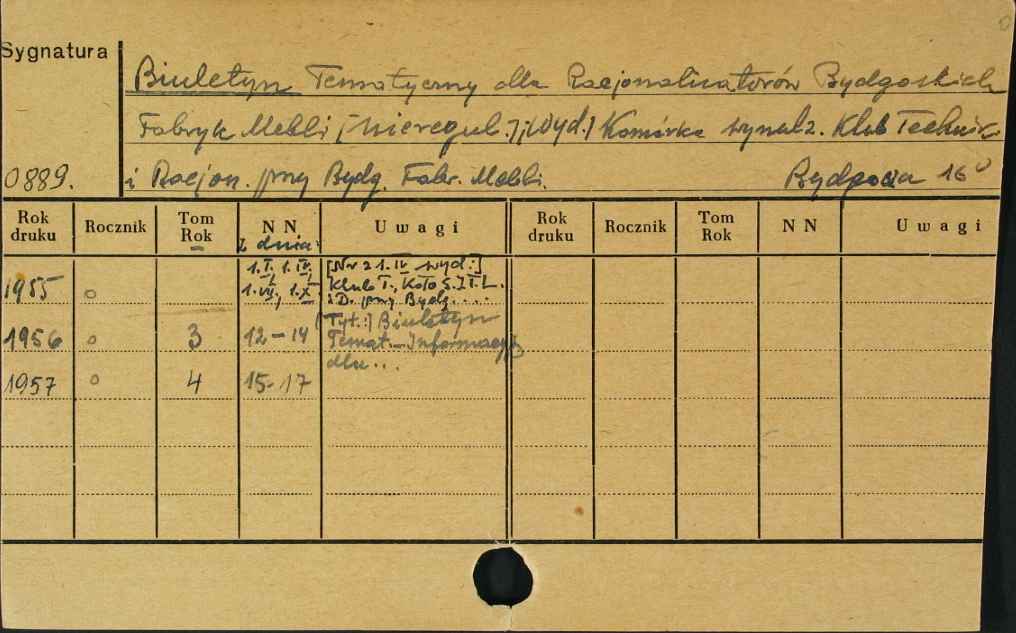 Sygnatura
Biuletyn Tematyczny dla Racjonalizatorów Bydgoskich
Fabryk Mebli [nieregul.]; [Wyd.] Komórka wynalz. Klub Techniki
0889. i Racjon. przy Bydg. Fabr. Mebli. Bydgoszcz 16°
Rok druku Rocznik Tom Rok NN Uwagi Rok druku Rocznik Tom Rok NN Uwagi
z dnia:
1955 o 1.I. 1.IV. [Nr 2 1.IV wyd.:]
1.VII, 1.X. Klub T., Koło S.I.T.L.
i D. przy Bydg. ....
1956 o 3 12-14 [Tyt.:] Biuletyn
Temat.-Informacyj
dla ...
1957 o 4 15-17